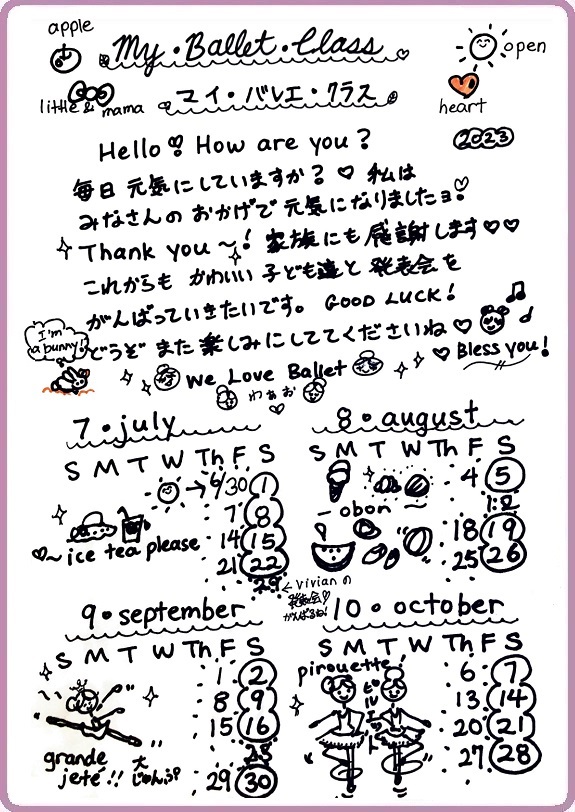 apple
My・Ballet・Class
open
little & mama
マイ・バレエ・クラス
heart
2023
Hello♡ How are you?
毎日 元気にしていますか？♡ 私は
みなさんの おかげで 元気になりましたョ♡
Thank you〜! 家族にも 感謝します♡♡
これからも かわいい 子ども達と 発表会を
がんばっていきたいです。 GOOD LUCK!
I'm
a bunny!
どうぞ また 楽しみにしててくださいね♡
♡Bless you!
We Love Ballet
わぁお
7・july
S M T W Th F S
→6/30 1
7 8
14 15
♡~ice tea please
21 22
29 ← vivianの
発表会♡
がんばるね!
8・august
S M T W Th F S
4 5
12
- obon ~
18 19
25 26
9・september
S M T W Th F S
1 2
8 9
15 16
23
grande
jeté!! 大じゃんぷ
29 30
10・october
S M T W Th F S
pirouette!
ピルエット
6 7
13 14
20 21
27 28